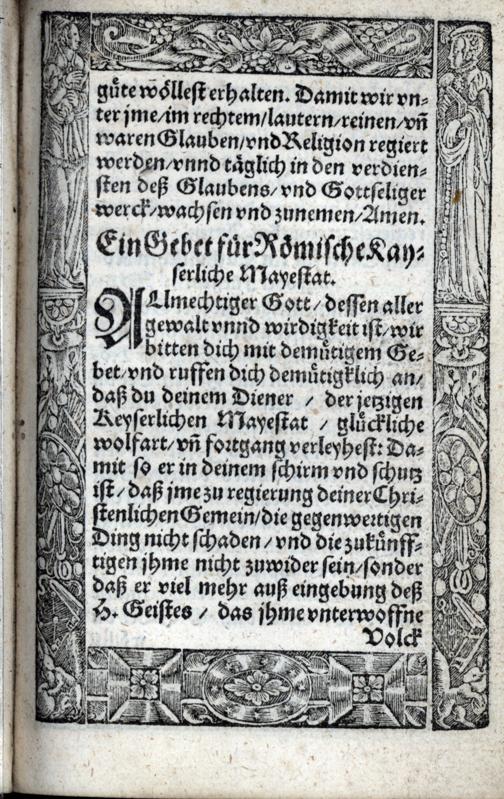 guͤte woͤllest erhalten. Damit wir vn-
ter jme/im rechtem/lautern/reinen/vn̄
waren Glauben/vnd Religion regiert
werden/vnnd taͤglich in den verdien-
sten deß Glaubens/vnd Gottseliger
werck/wachsen vnd zunemen/Amen.
Ein Gebet fuͤr Roͤmische Kay-
serliche Mayestat.
ALlmechtiger Gott/dessen aller
gewalt vnnd wirdigkeit ist/wir
bitten dich mit demuͤtigem Ge-
bet/vnd ruffen dich demuͤtigklich an/
daß du deinem Diener / der jetzigen
Keyserlichen Mayestat / gluͤckliche
wolfart/vn̄ fortgang verleyhest: Da-
mit so er in deinem schirm vnd schutz
ist/daß jme zu regierung deiner Chri-
stenlichen Gemein/die gegenwertigen
Ding nicht schaden/vnd die zukuͤnff-
tigen jhme nicht zuwider sein/sonder
daß er viel mehr auß eingebung deß
H. Geistes / das jhme vnterwoffne
Volck